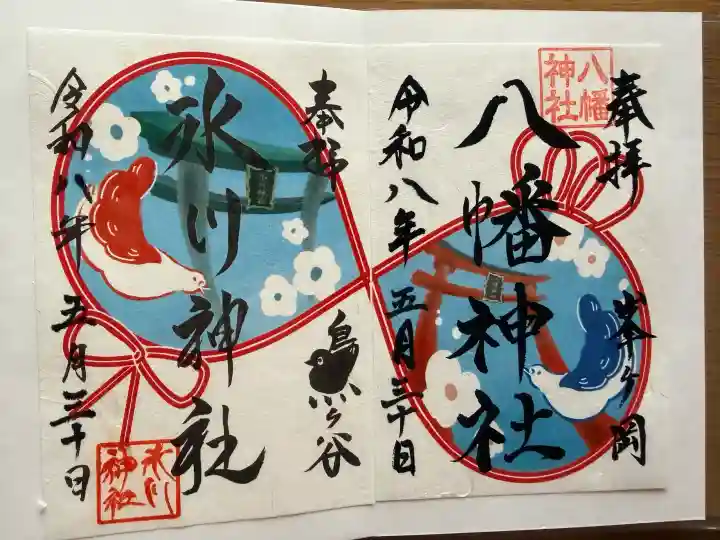 奉拝
峯ヶ岡
八幡神社
八幡神社
令和八年 五月三十日
奉拝
鳥ヶ谷
氷川神社
氷川神社
令和八年 五月三十日